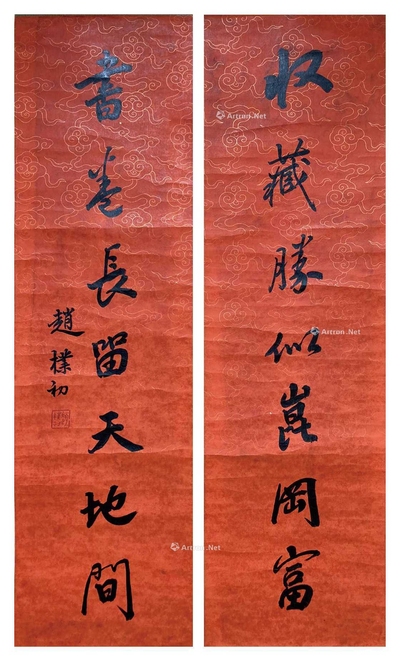 收藏勝似崑岡富
書卷長留天地間
趙樸初
Artron.Net
Artron.Net
Artron.Net